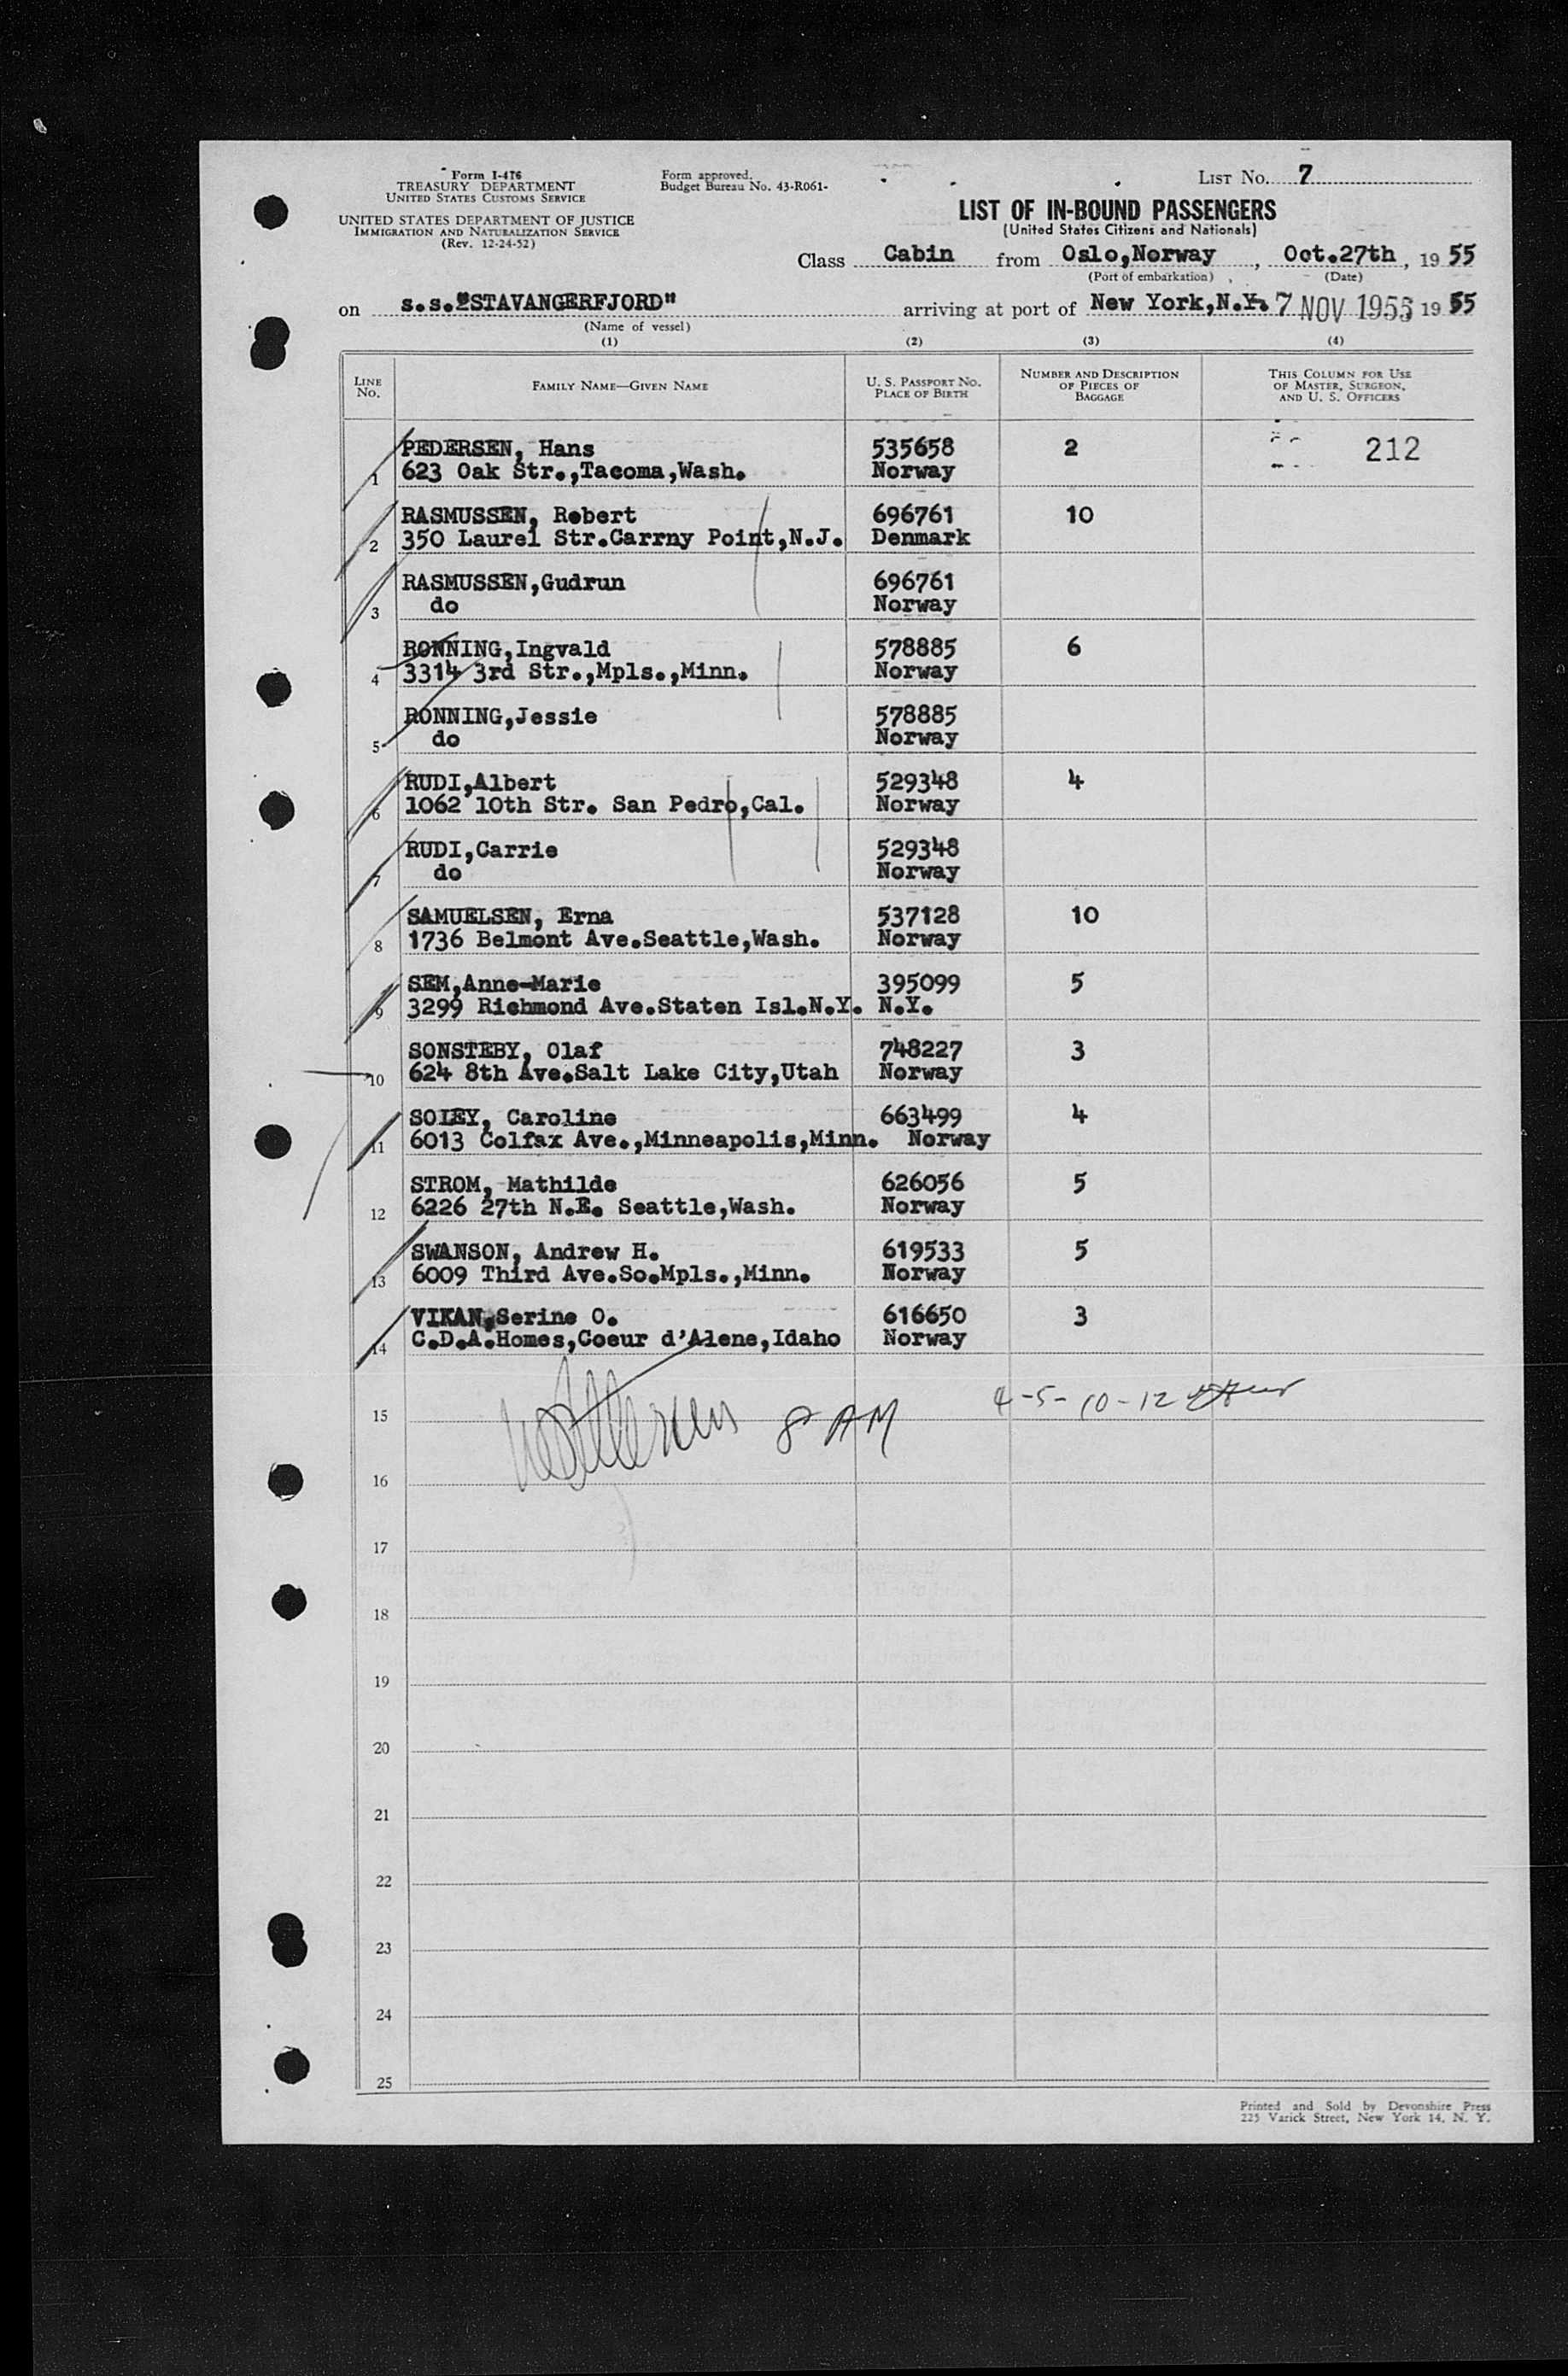 Form I-416
TREASURY DEPARTMENT
UNITED STATES CUSTOMS SERVICE
UNITED STATES DEPARTMENT OF JUSTICE
IMMIGRATION AND NATURALIZATION SERVICE
(Rev. 12-24-52)
Form approved.
Budget Bureau No. 43-R061-
LIST No. 7
LIST OF IN-BOUND PASSENGERS
(United States Citizens and Nationals)
Class Cabin from Oslo,Norway , Oct.27th, 1955
(Port of embarkation) (Date)
on s.s."STAVANGERFJORD" arriving at port of New York,N.Y. 7 NOV 1955 1955
(Name of vessel)
(1) (2) (3) (4)
LINE No. FAMILY NAME—GIVEN NAME U. S. PASSPORT No. PLACE OF BIRTH NUMBER AND DESCRIPTION OF PIECES OF BAGGAGE THIS COLUMN FOR USE OF MASTER, SURGEON, AND U. S. OFFICERS
PEDERSEN, Hans 535658 2 212
1 623 Oak Str.,Tacoma,Wash. Norway
RASMUSSEN, Robert 696761 10
2 350 Laurel Str.Carrny Point,N.J. Denmark
RASMUSSEN,Gudrun 696761
3 do Norway
RONNING,Ingvald 578885 6
4 3314 3rd Str.,Mpls.,Minn. Norway
RONNING,Jessie 578885
5 do Norway
RUDI,Albert 529348 4
6 1062 10th Str. San Pedro,Cal. Norway
RUDI,Carrie 529348
7 do Norway
SAMUELSEN, Erna 537128 10
8 1736 Belmont Ave.Seattle,Wash. Norway
SEM,Anne-Marie 395099 5
9 3299 Richmond Ave.Staten Isl.N.Y. N.Y.
SONSTEBY, Olaf 748227 3
10 624 8th Ave.Salt Lake City,Utah Norway
SOLEY, Caroline 663499 4
11 6013 Colfax Ave.,Minneapolis,Minn. Norway
STROM, Mathilde 626056 5
12 6226 27th N.E. Seattle,Wash. Norway
SWANSON, Andrew H. 619533 5
13 6009 Third Ave.So.Mpls.,Minn. Norway
VIKAN,Serine O. 616650 3
14 C.D.A.Homes,Coeur d'Alene,Idaho Norway
4-5-10-12
15 8 AM
16
17
18
19
20
21
22
23
24
25
Printed and Sold by Devonshire Press
225 Varick Street, New York 14, N. Y.